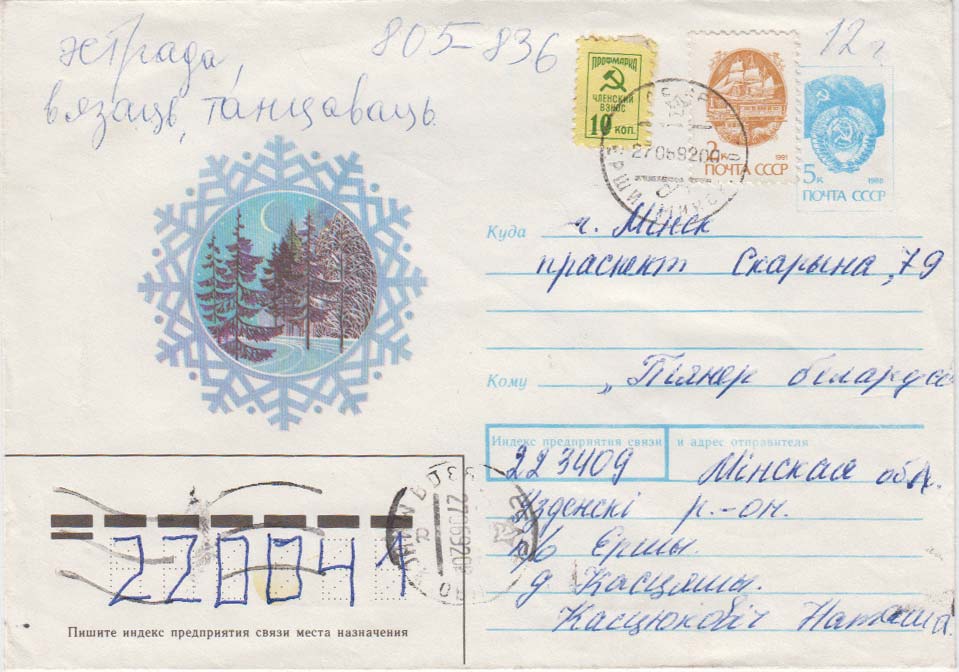 эстрада, 805-836 12 г
вязаць, танцоваць
ПРОФМАРКА
ЧЛЕНСКИЙ
ВЗНОС
10 КОП.
2к 1991
ПОЧТА СССР
5к 1988
ПОЧТА СССР
270692
Куда г. Мінск
праспект Скарына, 79
Кому „Піянер беларусі
Индекс предприятия связи и адрес отправителя
223409 Мінская обл.
Узденскі р.-он.
п/о Ершы.
д Касцюшы.
Касцюковіч Наташа.
220041
Пишите индекс предприятия связи места назначения